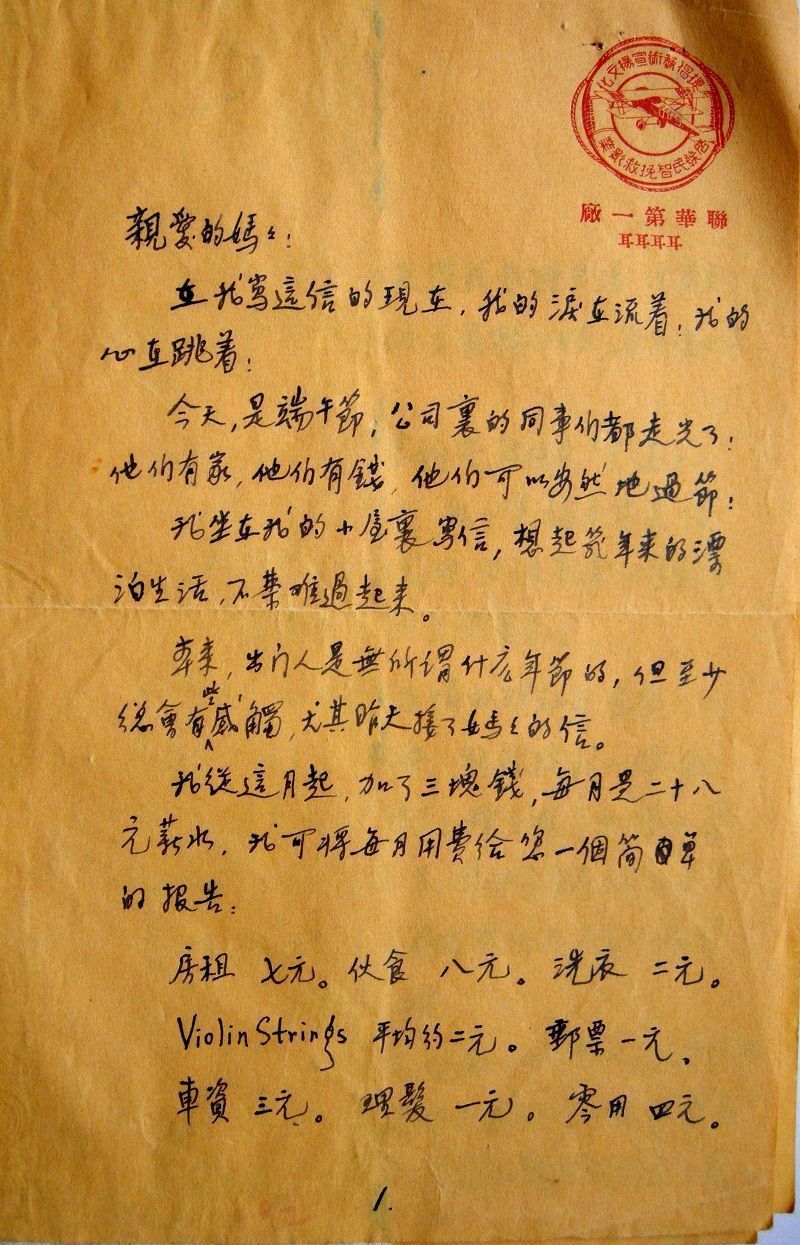 提倡藝術宣揚文化
啓發民智挽救影業
聯華第一廠
耳耳耳耳
親愛的媽々：
在我寫這信的現在，我的淚在流着；我的
心在跳着；
今天，是端午節，公司裏的同事們都走光了；
他們有家，他們有錢，他們可以安然地過節；
我坐在我的小屋裏寫信，想起幾年來的漂
泊生活，不禁難過起來。
本來，出門人是無所謂什么年節的，但至少
總會有些感觸，尤其昨天接了媽々的信。
我從這月起，加了三塊錢，每月是二十八
元薪水，我可將每月用費給您一個简單
的报告：
房租 七元。伙食 八元。洗衣 二元。
Violin Strings 平均約二元。郵票一元、
車資 三元。理髮 一元。零用 四元。
1.